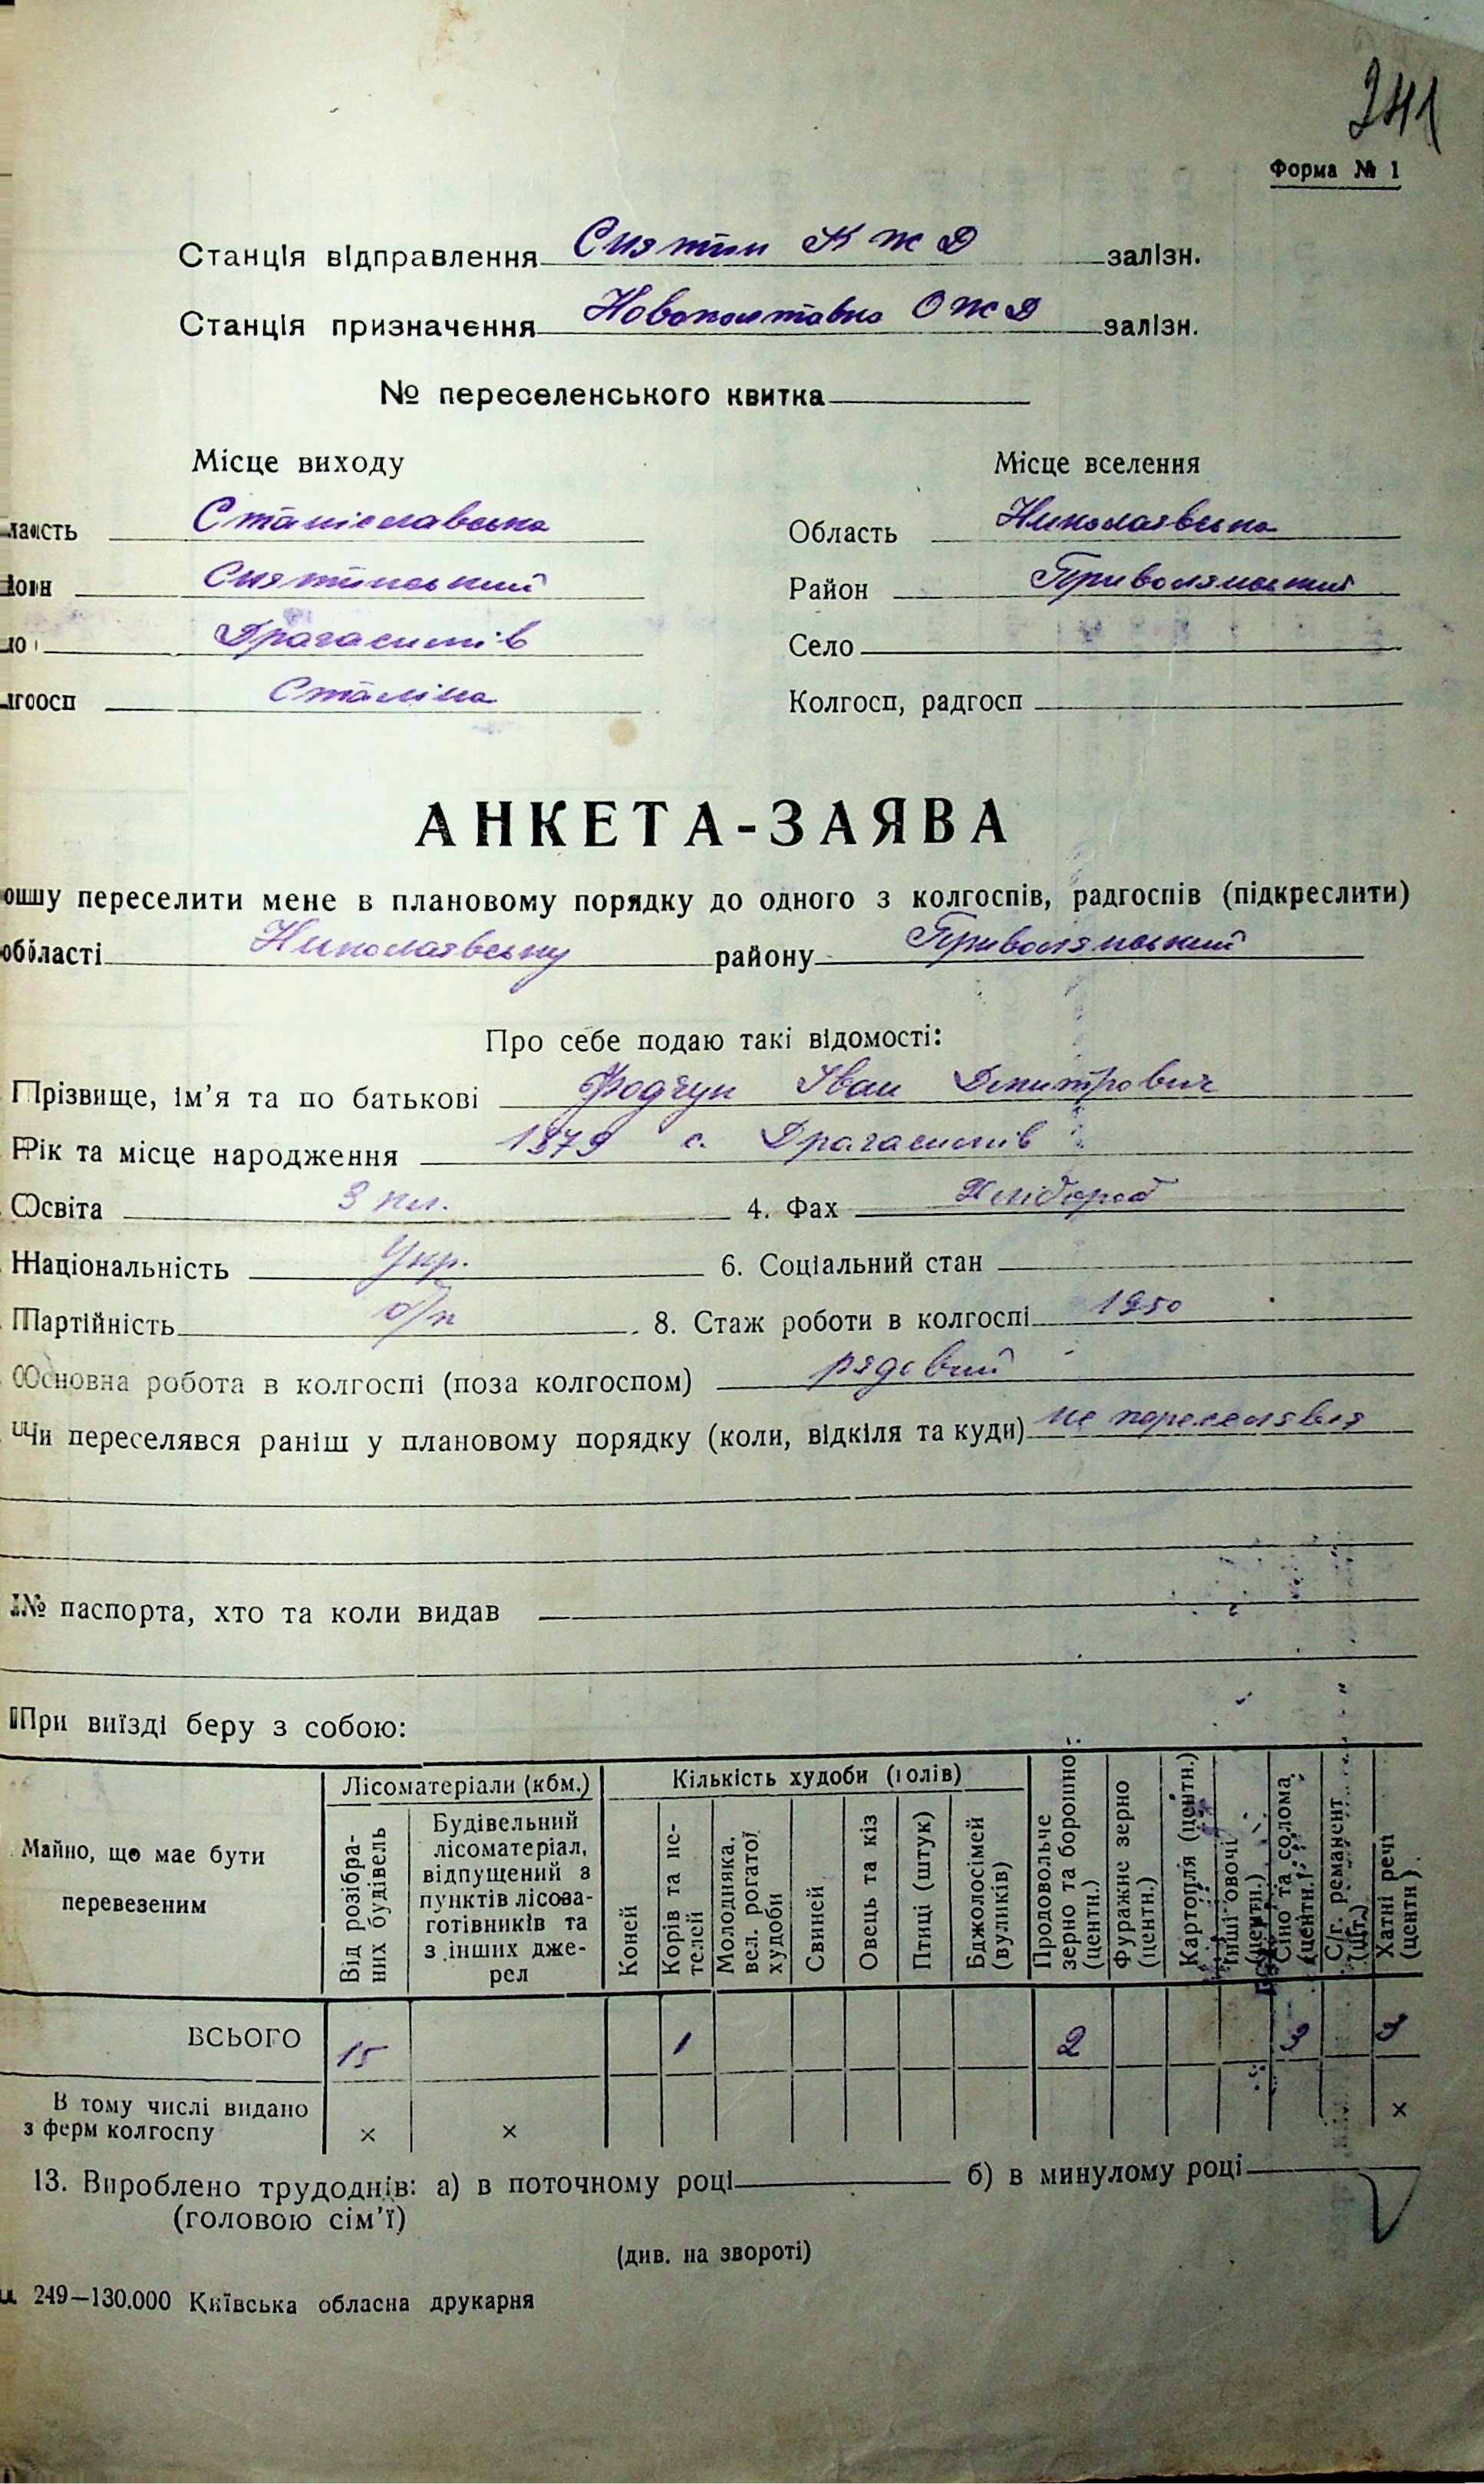 241
Форма № 1
Станція відправлення Снятин К ж Д залізн.
Станція призначення Новополтавка О ж Д залізн.
№ переселенського квитка
Місце виходу Місце вселення
ласть Станіславська Область Николаявська
йон Снятинський Район Приволянський
ло Драгасимів Село
лгосп Сталіна Колгосп, радгосп
АНКЕТА-ЗАЯВА
ошу переселити мене в плановому порядку до одного з колгоспів, радгоспів (підкреслити)
області Николаявську району Приволянський
Про себе подаю такі відомості:
Прізвище, ім'я та по батькові Фодчук Іван Дмитрович
Рік та місце народження 1879 с. Драгасимів
Освіта 3 кл. 4. Фах Хлібороб
Національність Укр. 6. Соціальний стан
Партійність б/п 8. Стаж роботи в колгоспі 1950
Основна робота в колгоспі (поза колгоспом) рядовий
Чи переселявся раніш у плановому порядку (коли, відкіля та куди) не переселявся
№ паспорта, хто та коли видав
При виїзді беру з собою:
Майно, що має бути перевезеним
Лісоматеріали (кбм.)
Від розібраних будівель
Будівельний лісоматеріал, відпущений з пунктів лісозаготівників та з інших джерел
Кількість худоби (голів)
Коней
Корів та нетелей
Молодняка, вел. рогатої худоби
Свиней
Овець та кіз
Птиці (штук)
Бджолосімей (вуликів)
Продовольче зерно та борошно (центн.)
Фуражне зерно (центн.)
Картопля (центн.)
Інші овочі (центн.)
Сіно та солома (центн.)
С/г. реманент (шт.)
Хатні речі (центн.)
ВСЬОГО 15 1 2 3 3
В тому числі видано
з ферм колгоспу × × ×
13. Вироблено трудоднів: а) в поточному році б) в минулому році
(головою сім'ї)
(див. на звороті)
249—130.000 Київська обласна друкарня